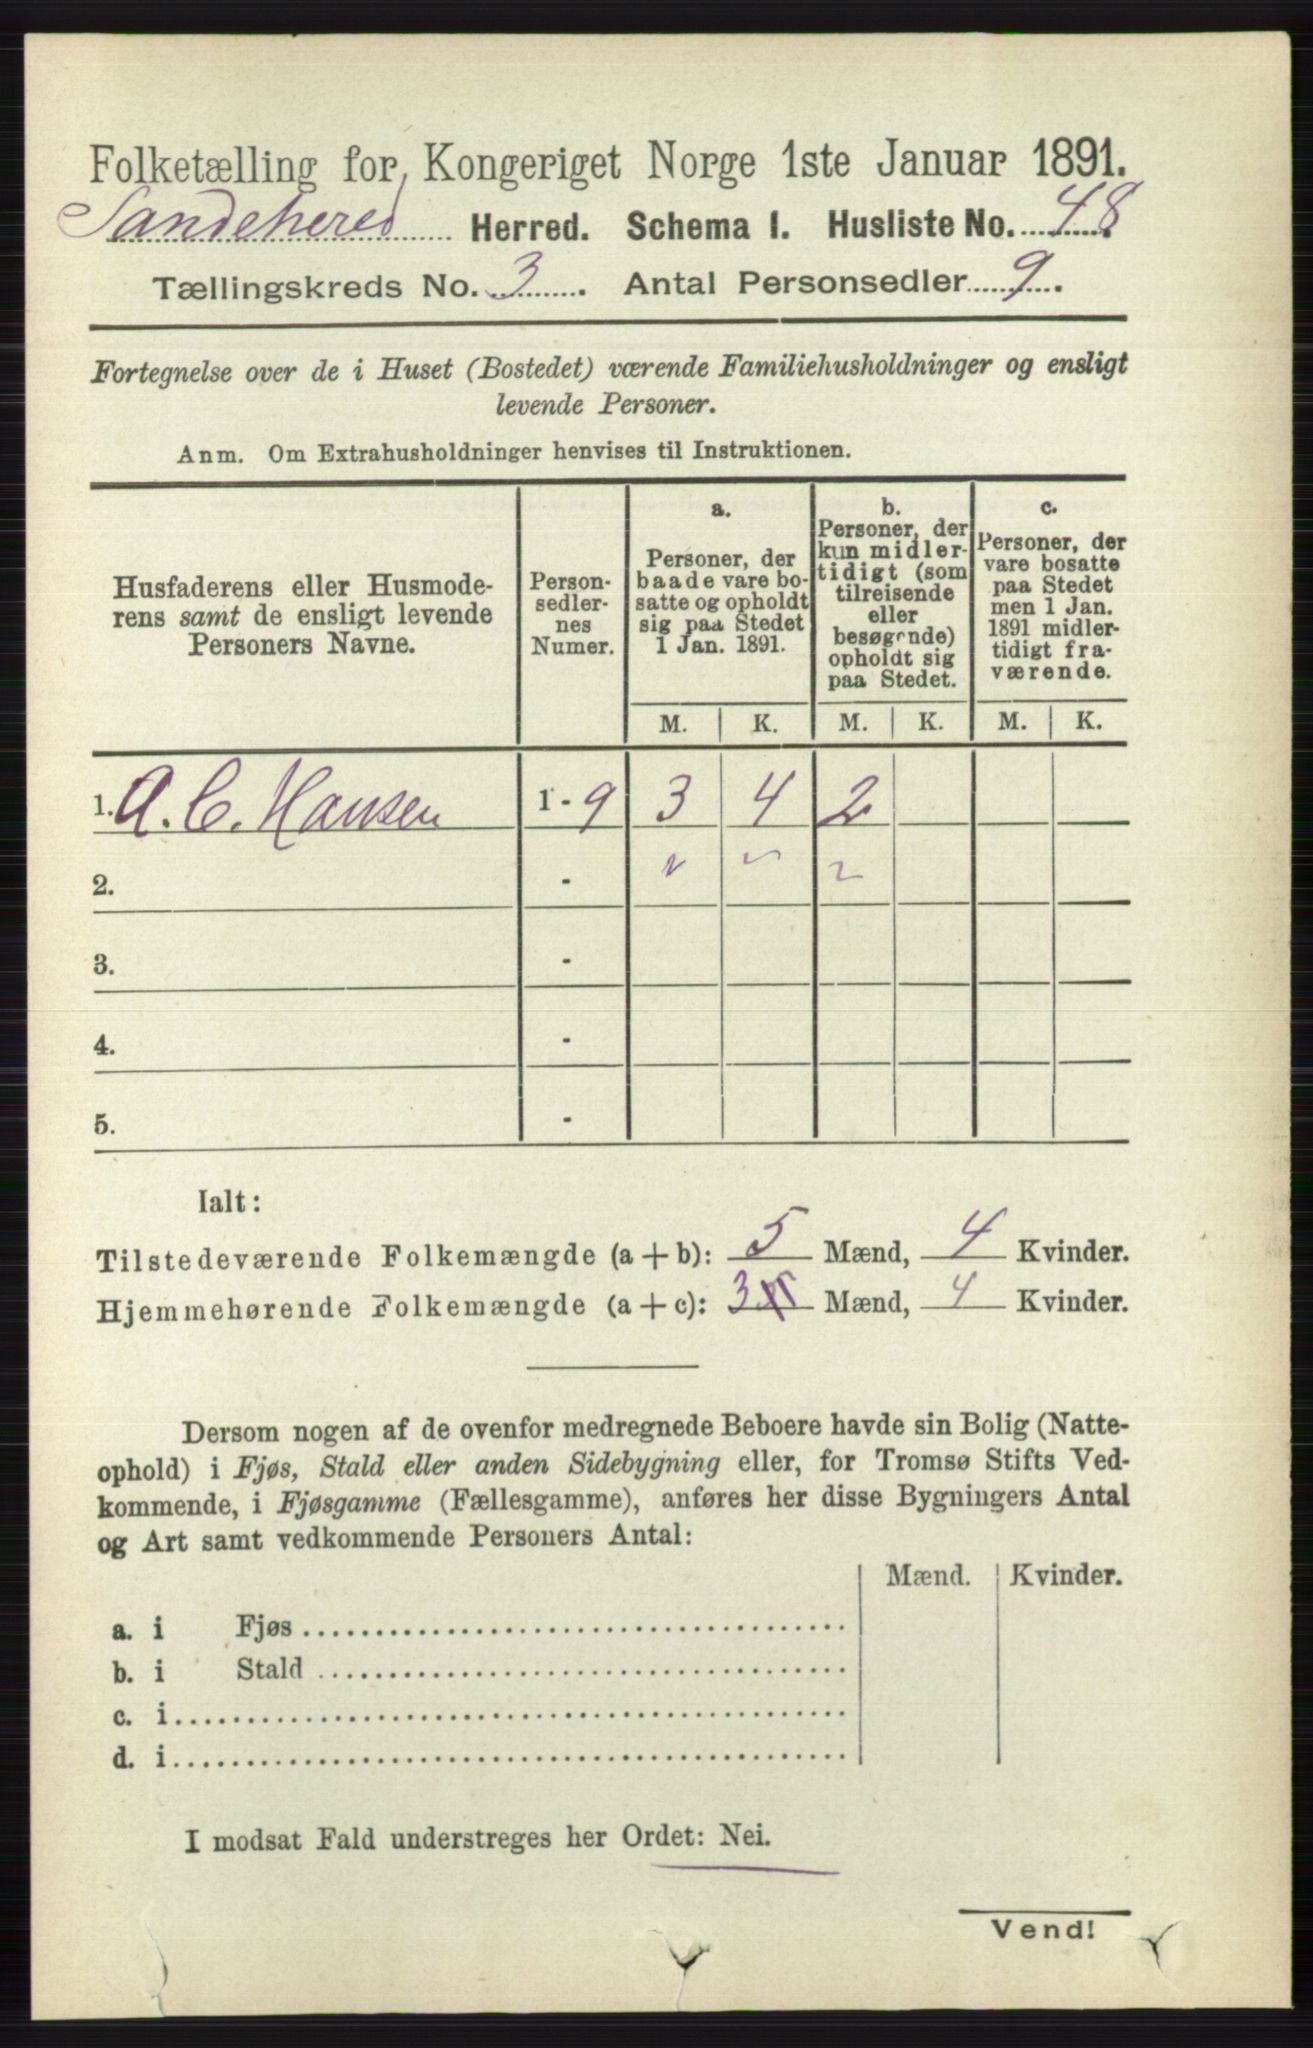 Folketælling for Kongeriget Norge 1ste Januar 1891.
Sandehered Herred. Schema I. Husliste No. 48.
Tællingskreds No. 3. Antal Personsedler 9.
Fortegnelse over de i Huset (Bostedet) værende Familiehusholdninger og ensligt
levende Personer.
Anm. Om Extrahusholdninger henvises til Instruktionen.
Husfaderens eller Husmode-
rens samt de ensligt levende
Personers Navne.
Person-
sedler-
nes
Numer.
a.
Personer, der
baade vare bo-
satte og opholdt
sig paa Stedet
1 Jan. 1891.
b.
Personer, der
kun midler-
tidigt (som
tilreisende
eller
besøgende)
opholdt sig
paa Stedet.
c.
Personer, der
vare bosatte
paa Stedet
men 1 Jan.
1891 midler-
tidigt fra-
værende.
M. K. M. K. M. K.
1. A. C. Hansen 1 - 9 3 4 2
2. -
3. -
4. -
5. -
Ialt:
Tilstedeværende Folkemængde (a + b): 5 Mænd, 4 Kvinder.
Hjemmehørende Folkemængde (a + c): 3 5 Mænd, 4 Kvinder.
Dersom nogen af de ovenfor medregnede Beboere havde sin Bolig (Natte-
ophold) i Fjøs, Stald eller anden Sidebygning eller, for Tromsø Stifts Ved-
kommende, i Fjøsgamme (Fællesgamme), anføres her disse Bygningers Antal
og Art samt vedkommende Personers Antal:
Mænd. Kvinder.
a. i Fjøs
b. i Stald
c. i
d. i
I modsat Fald understreges her Ordet: Nei.
Vend!